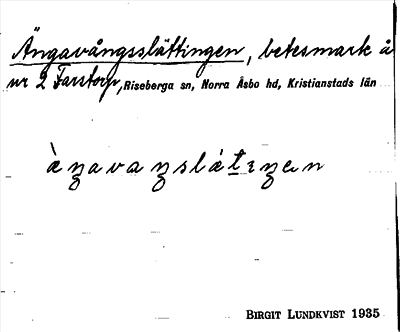 Ängavångsslättingen, betesmark å
nr 2 Farstorp, Riseberga sn, Norra Åsbo hd, Kristianstads län
BIRGIT LUNDKVIST 1935